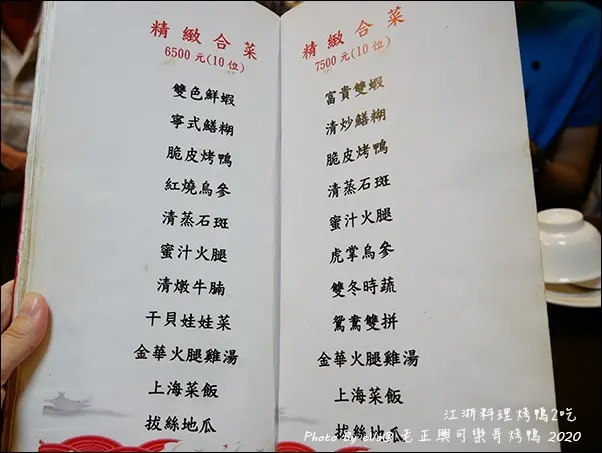 精緻合菜
6500元(10位)
雙色鮮蝦
寧式鱔糊
脆皮烤鴨
紅燒烏參
清蒸石斑
蜜汁火腿
清燉牛腩
干貝娃娃菜
金華火腿雞湯
上海菜飯
拔絲地瓜
精緻合菜
7500元(10位)
富貴雙蝦
清炒鱔糊
脆皮烤鴨
清蒸石斑
蜜汁火腿
虎掌烏參
雙冬時蔬
鴛鴦雙拼
金華火腿雞湯
上海菜飯
拔絲地瓜
江浙料理烤鴨2吃
Photo By eVa@老正興可樂哥烤鴨 2020